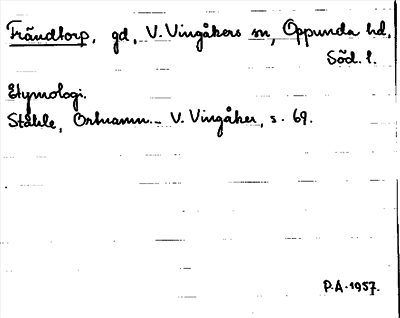 Frändtorp, gd, V. Vingåkers sn, Oppunda hd,
Söd. l.
Etymologi.
Ståhle, Ortnamn.. V. Vingåker, s. 69.
P.A. 1957.